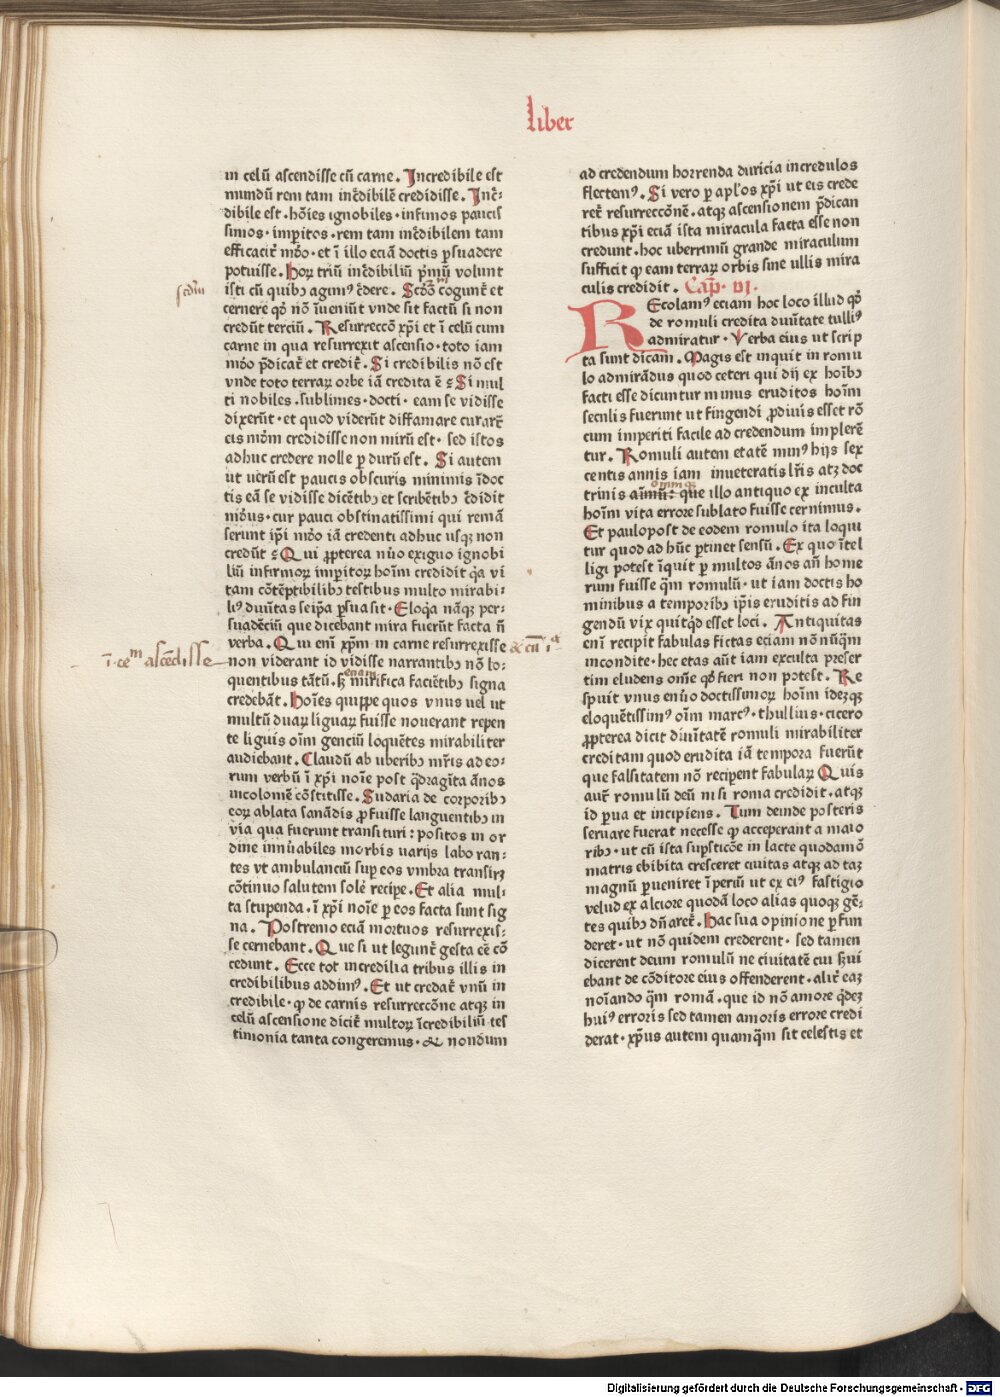 liber
in celū ascendisse cū carne. Incredibile est
mundū rem tam incͬdibilē credidisse. Incͬ-
dibile est. hoīes ignobiles. infimos paucis
simos. impitos. rem tam incͬdibilem tam
efficacit᷑ mōo. et ī illo eciā doctis ꝑsuadere
potuisse. Hoꝝ triū incͬdibiliū pͥmū volunt
isti cū quibꝫ agimꝰ cͬdere. Scd̄m cogunt᷑ et
scd̄m
cernere qd̓ nō īueniūt vnde sit factū si non
credūt terciū. Resurreccō xp̄i et ī celū cum
carne in qua resurrexit ascensio. toto iam
mōo p̄dicat᷑ et credit᷑. Si credibilis nō est
vnde toto terraꝝ orbe iā credita ē ꝛ Si mul
ti nobiles. sublimes. docti. eam se vidisse
dixerūt. et quod viderūt diffamare curarēt
eis mōm credidisse non mirū est. sed istos
adhuc credere nolle ꝑ durū est. Si autem
ut verū est paucis obscuris minimis īdoc
tis eā se vidisse dicētibꝫ et scribētibꝫ cͬdidit
mōus. cur pauci obstinatissimi qui remā
serunt ip̄i mōo iā credenti adhuc usqꝫ non
credūt ꝛ Qui ꝓpterea nūo exiguo ignobi
liū infirmoꝝ impitoꝝ hoīm credidit qͥa vi
tam cōtēptibilibꝫ testibus multo mirabi-
liꝰ diuītas seip̄a ꝑsuasit. Eloqͥa nāqꝫ per-
suadēciū que dicebant mira fuerūt facta n̄
verba. Qui enī xp̄m in carne resurrexisse
& cū ī ᵃ
ī. ceᵐ ascēdisse
non viderant id vidisse narrantibꝫ nō lo-
quentibus tātū. sꝫ mirifica faciētibꝫ signa
etiam
credebāt. Hoīes quippe quos vnus uel ut
multū duaꝝ liguaꝝ fuisse nouerant repen
te liguis oīm genciū loquētes mirabiliter
audiebant. Claudū ab uberibꝫ mr̄is ad eo-
rum verbū ī xp̄i noīe post qͣdragīta ānos
incolomē cōstitisse. Sudaria de corporibꝫ
eoꝝ ablata sanādis ꝓfuisse languentibꝫ in
via qua fuerunt transituri: positos in or
dine innūabiles morbis uarijs laboran-
tes vt ambulanciū sup eos vmbra transirꝫ
cōtinuo salutem solē recipe. Et alia mul-
ta stupenda. ī xp̄i noīe ꝑ eos facta sunt sig
na. Postremo eciā mortuos resurrexis-
se cernebant. Que si ut legunt᷑ gesta cē cō
cedunt. Ecce tot incredilia tribus illis in
credibilibus addimꝰ. Et ut credat᷑ vnū in
credibile. qͦ de carnis resurreccōne atqꝫ in
celū ascensione dicit᷑ multoꝝ īcredibiliū tes
timonia tanta congeremus. & nondum
ad credendum horrenda duricia incredulos
flectemꝰ. Si vero ꝑ apl̓os xp̄i ut eis crede
ret᷑ resurreccōnē. atqꝫ ascensionem p̄dican
tibus xp̄i eciā ista miracula facta esse non
credunt. hoc uberrimū grande miraculum
sufficit qͦ eam terraꝝ orbis sine ullis mira
culis credidit. Cap̄. vi.
Recolamꝰ eciam hoc loco illud qd̓
de romuli credita diuītate tulliꝰ
admiratur. Verba eius ut scrip
ta sunt dicam. Magis est inquit in romu
lo admirādus quod ceteri qui dij ex hoībꝫ
facti esse dicuntur minus eruditos hoīm
seculis fuerunt ut fingendi ꝓdiuis esset rō
cum imperiti facile ad credendum implerē
tur. Romuli autem etatē minꝰ hijs sex
centis annis iam inueteratis lr̄is atqꝫ doc
trinis annū: que illo antiquo ex inculta
omnqꝫ
hoīm vita errore sublato fuisse cernimus.
Et paulopost de eodem romulo ita loqui
tur quod ad hūc ꝑtinet sensū. Ex quo ītel
ligi potest īquit ꝑ multos ānos añ home
rum fuisse qͣm romulū. ut iam doctis ho
minibus a temporibꝫ ip̄is eruditis ad fin
gendū vix quitqͣd esset loci. Antiquitas
enī recipit fabulas fictas eciam nō nūqͣm
incondite. hec etas aūt iam exculta preser
tim eludens om̄e qd̓ fieri non potest. Re
spuit vnus enūo doctissimoꝝ hoīm idezqꝫ
eloquētissimꝰ oīm marcꝰ. thullius. cicero
ꝓpterea dicit diuītatē romuli mirabiliter
creditam quod erudita iā tempora fuerūt
que falsitatem nō recipent fabulaꝝ Quis
aut᷑ romulū deū nisi roma credidit. atqꝫ
id ꝑua et incipiens. Tum deinde posteris
seruare fuerat necesse qͦ acceperant a maio
ribꝫ. ut cū ista supsticōe in lacte quodamō
matris ebibita cresceret ciuitas atqꝫ ad taꝫ
magnū ꝑueniret īperiū ut ex eiꝰ fastigio
velud ex alciore quodā loco alias quoqꝫ gē-
tes quibꝫ dn̄aret᷑. Hac sua opinione ꝑfun
deret. ut nō quidem crederent. sed tamen
dicerent deum romulū ne ciuitatē cui sꝫui
ebant de cōditore eius offenderent. alit᷑ eaꝫ
noīando qͣm romā. que id nō amore qͥdeꝫ
huiꝰ erroris sed tamen amoris errore credi
derat. xp̄us autem quamqͣm sit celestis et
Digitalisierung gefördert durch die Deutsche Forschungsgemeinschaft - DFG